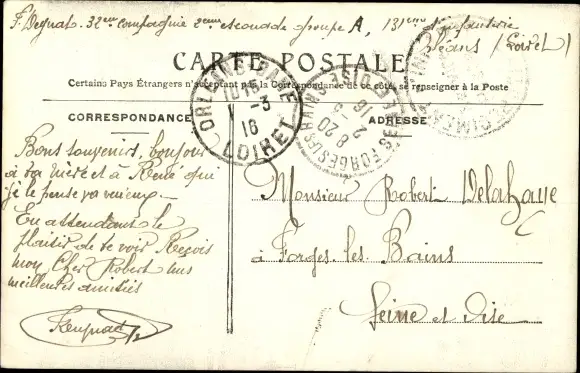 F. Deynat. 32eme compagnie 2eme escouade groupe A, 131eme Infanterie
Orléans (Loiret)
CARTE POSTALE
Certains Pays Étrangers n'acceptant pas la Correspondance de ce côté, se renseigner à la Poste
CORRESPONDANCE
Bons souvenirs, bonjour
à ta mère et à René qui
je le pense va mieux.
En attendant le
plaisir de te voir Reçois
mon Cher Robert mes
meilleures amitiés
ADRESSE
Monsieur Robert Delahaye
à Forges-les-Bains
Seine et Oise
ORLEANS-GARE
LOIRET
-3
16
FORGES-LES-BAINS
8 20
2 -3
16